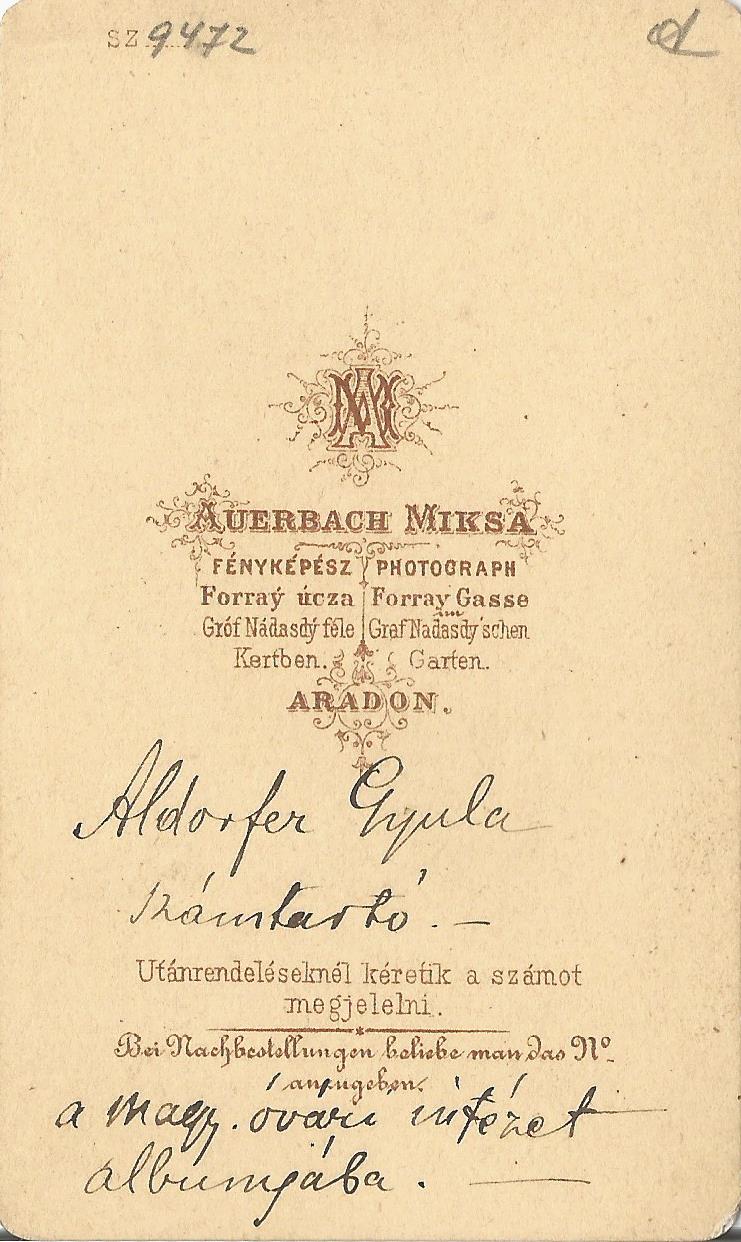 SZ 9472
AUERBACH MIKSA
FÉNYKÉPÉSZ PHOTOGRAPH
Forraý úcza Forray Gasse
im
Gróf Nádasdý féle Graf Nadasdy'schen
Kertben. Garten.
ARADON.
Aldorfer Gyula
számtartó. —
Utánrendeléseknél kéretik a számot
megjelelni.
Bei Nachbestellungen beliebe man das Nº
anzugeben.
a magy. óvári intézet
albumjába. —